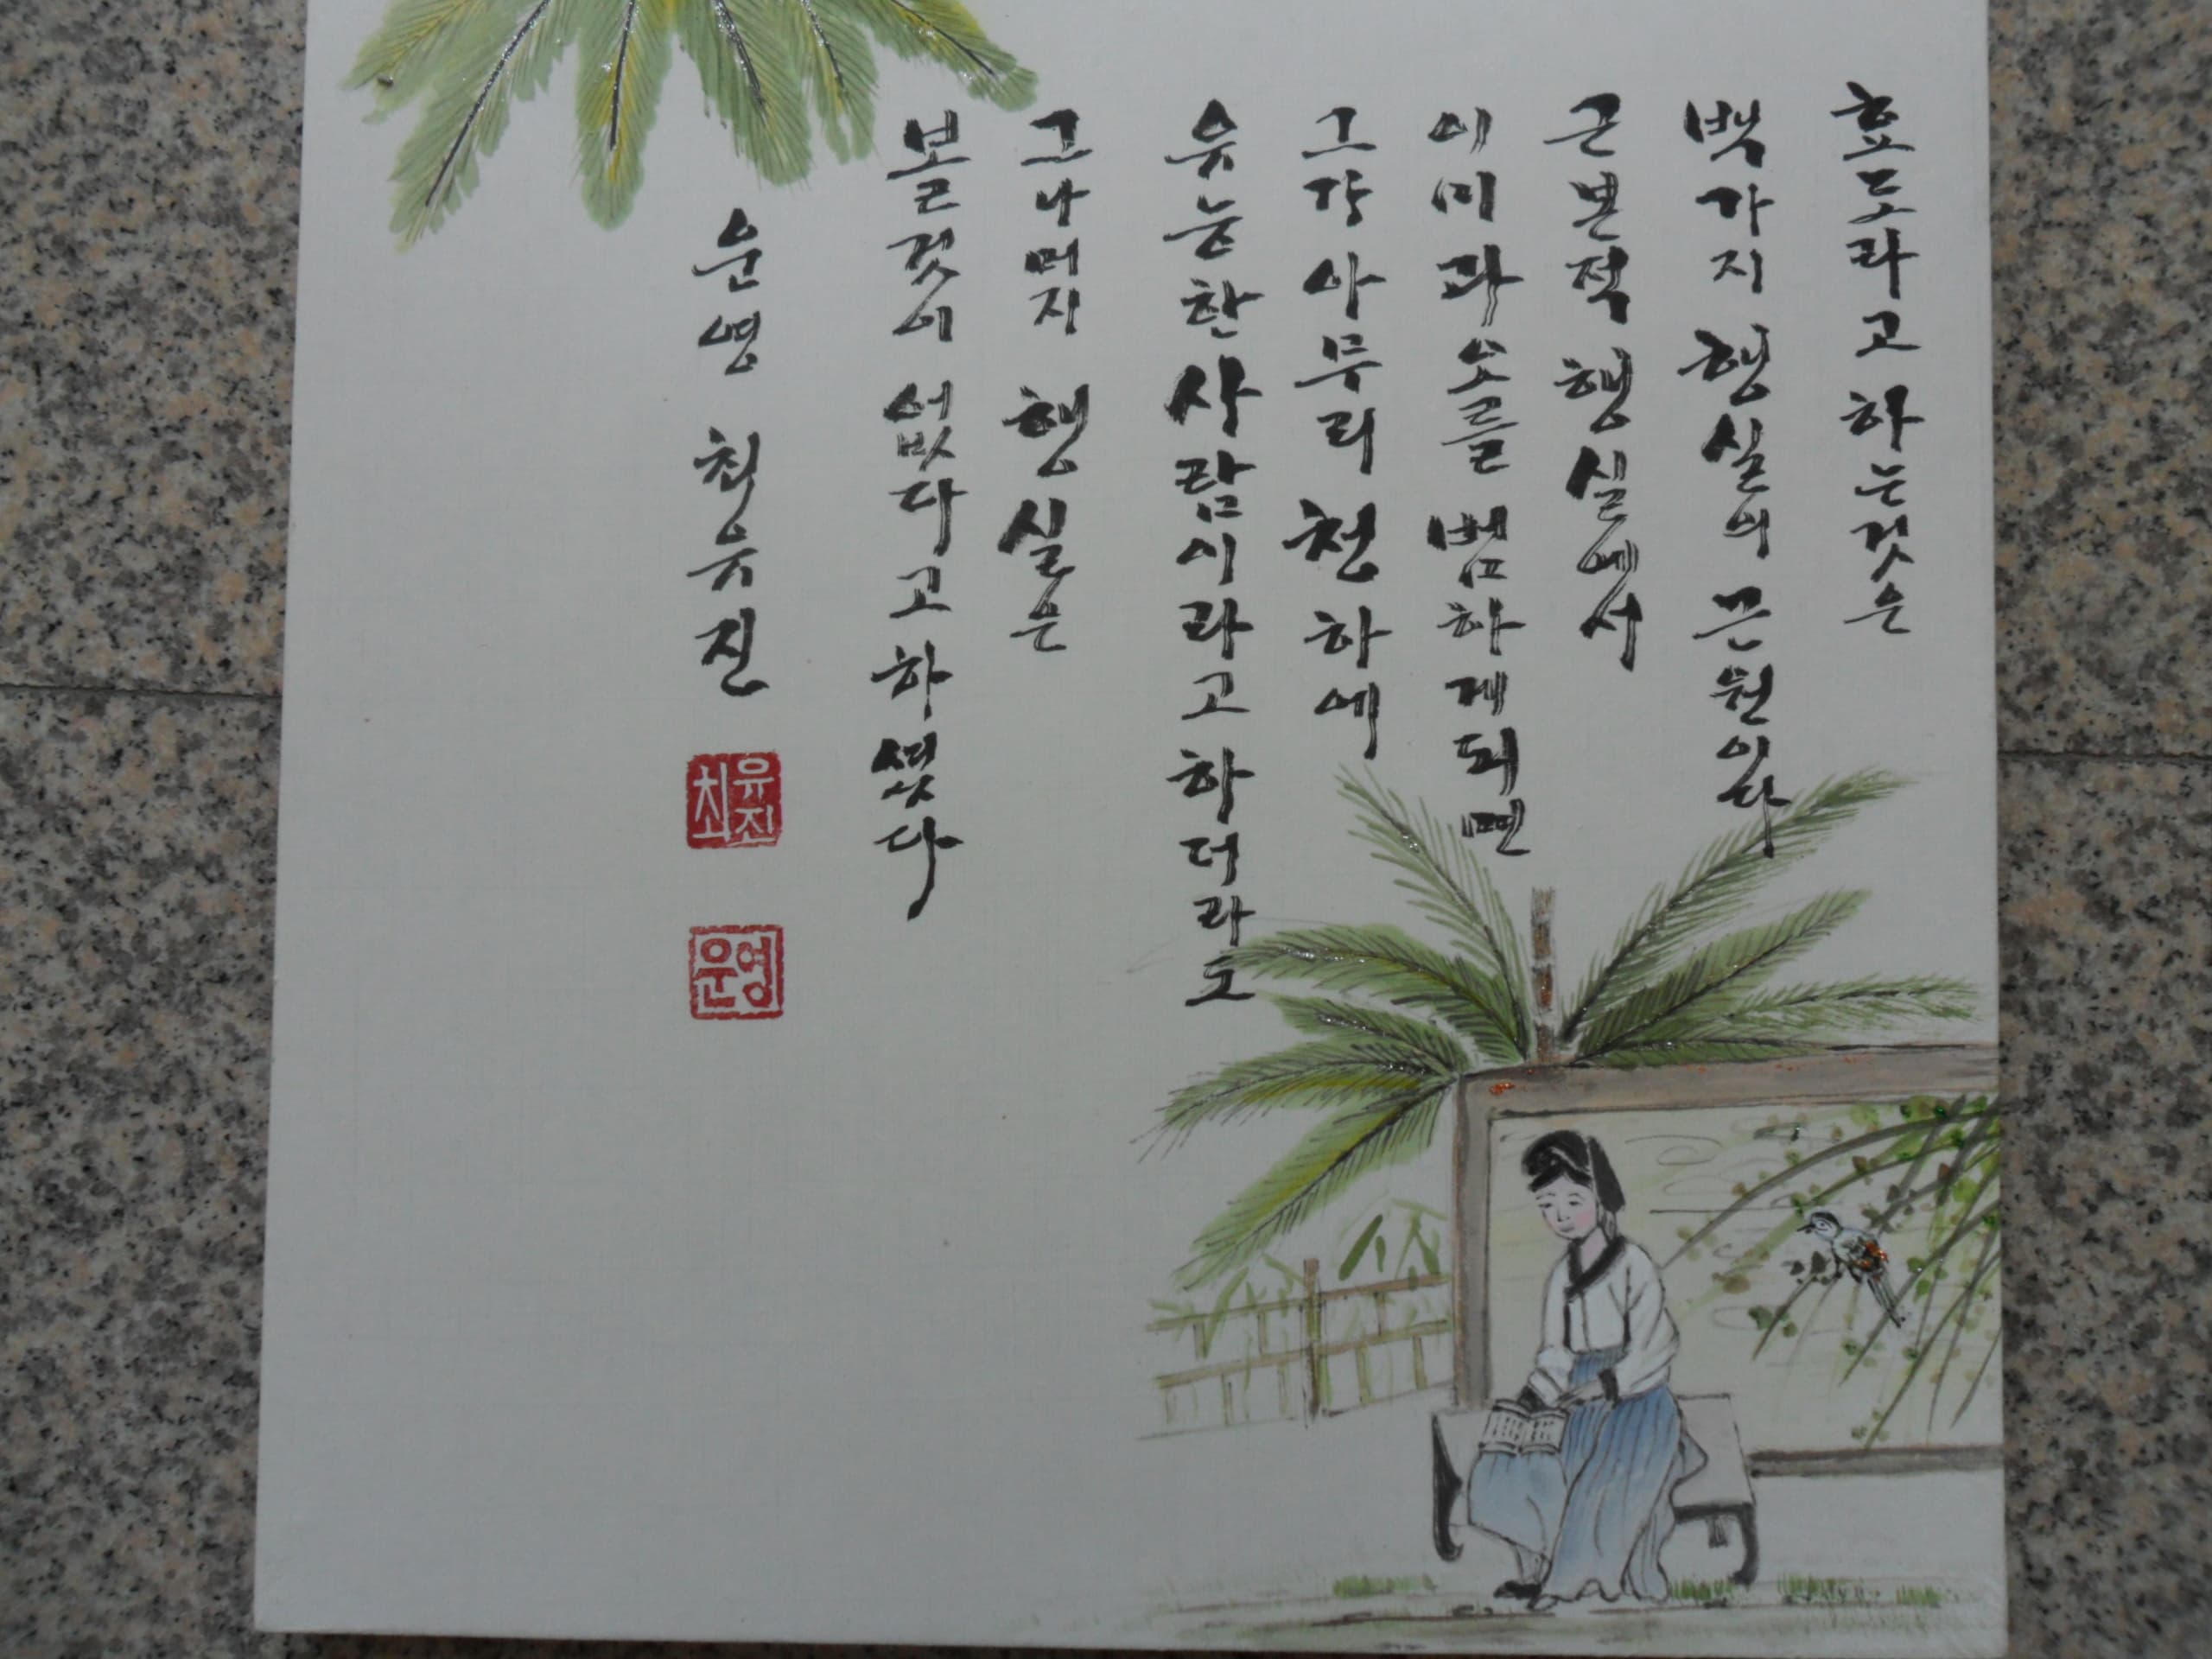 효도라고 하는것은
백가지 행실의 근원이다
근본적 행실에서
이미 과오를 범하게되면
그걍 아무리 천하에
유능한 사람이라고 하더라도
그 나머지 행실은
볼것이 없다고 하셨다
운영 최유진
최유진
운영